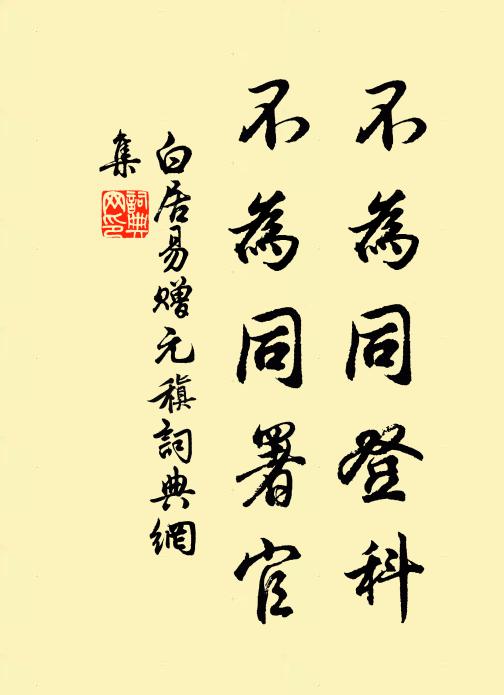 不為同登科
不為同署官
白居易赠元稹詞典網
集
詞典网印